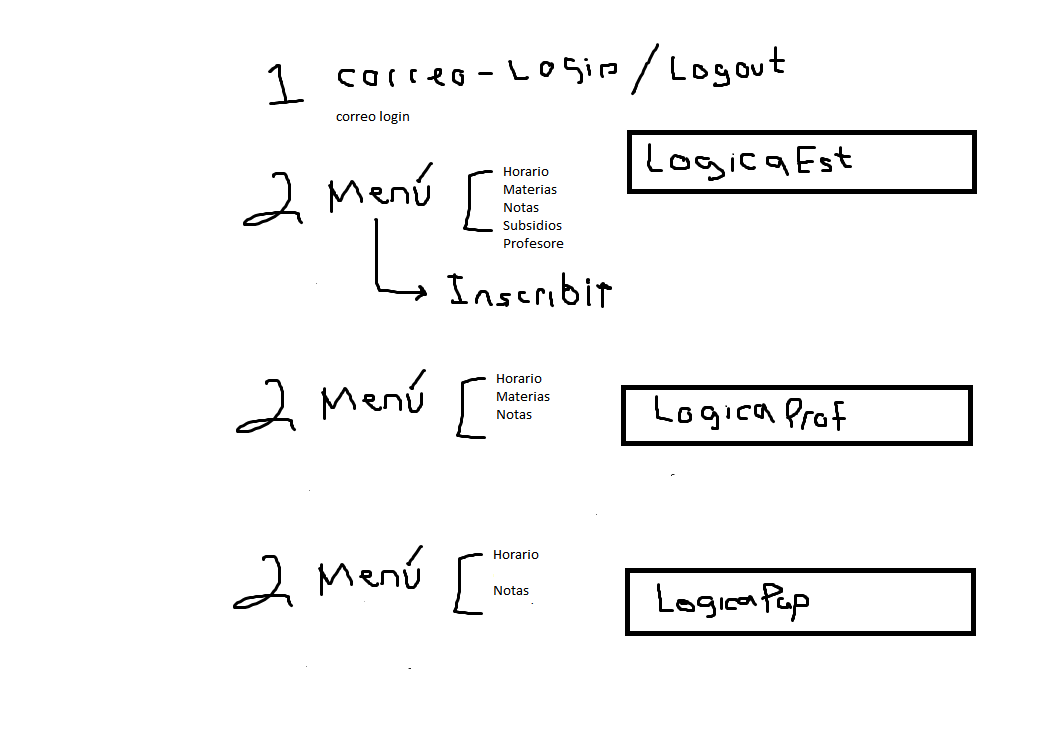 1 correo-Login/Logout
correo login
LogicaEst
2 Menú
Horario
Materias
Notas
Subsidios
Profesore
Inscribir
2 Menú
Horario
Materias
Notas
LogicaProf
2 Menú
Horario
Notas
LogicaPap